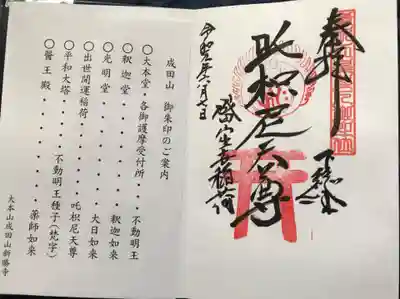 奉拝
下総国
吒枳尼天尊
出世稲荷
成田山 御朱印のご案内
〇大本堂・各御護摩受付所・・・不動明王
〇釈迦堂・・・・・・・・・・・釈迦如来
〇光明堂・・・・・・・・・・・大日如来
〇出世開運稲荷・・・・・・・・吒枳尼天尊
〇平和大塔・・・・・不動明王種子（梵字）
〇醫王殿・・・・・・・・・・・薬師如来
大本山成田山新勝寺